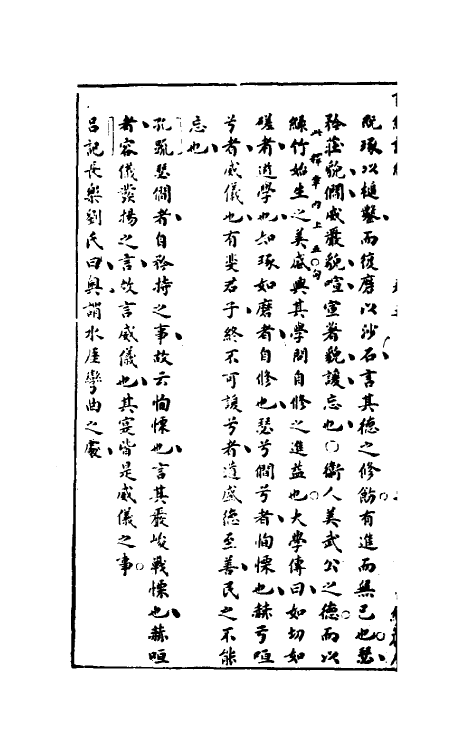 既琢以槌鑿而復磨以沙石言其德之修飭有進而無已也瑟
矜莊貌僩威嚴貌喧宣著貌諼忘也○衛人美武公之德而以
綠竹始生之美盛興其學問自修之進益也大學傳曰如切如
此釋章內上五句
磋者道學也如琢如磨者自修也瑟兮僩兮者恂慄也赫兮咺
兮者威儀也有斐君子終不可諼兮者道盛德至善民之不能
忘也
孔疏瑟僩者自矜持之事故云恂慄也言其嚴峻戰慄也赫咺
者容儀發揚之言故言威儀也其實皆是威儀之事
呂記長樂劉氏曰奧謂水厓彎曲之處